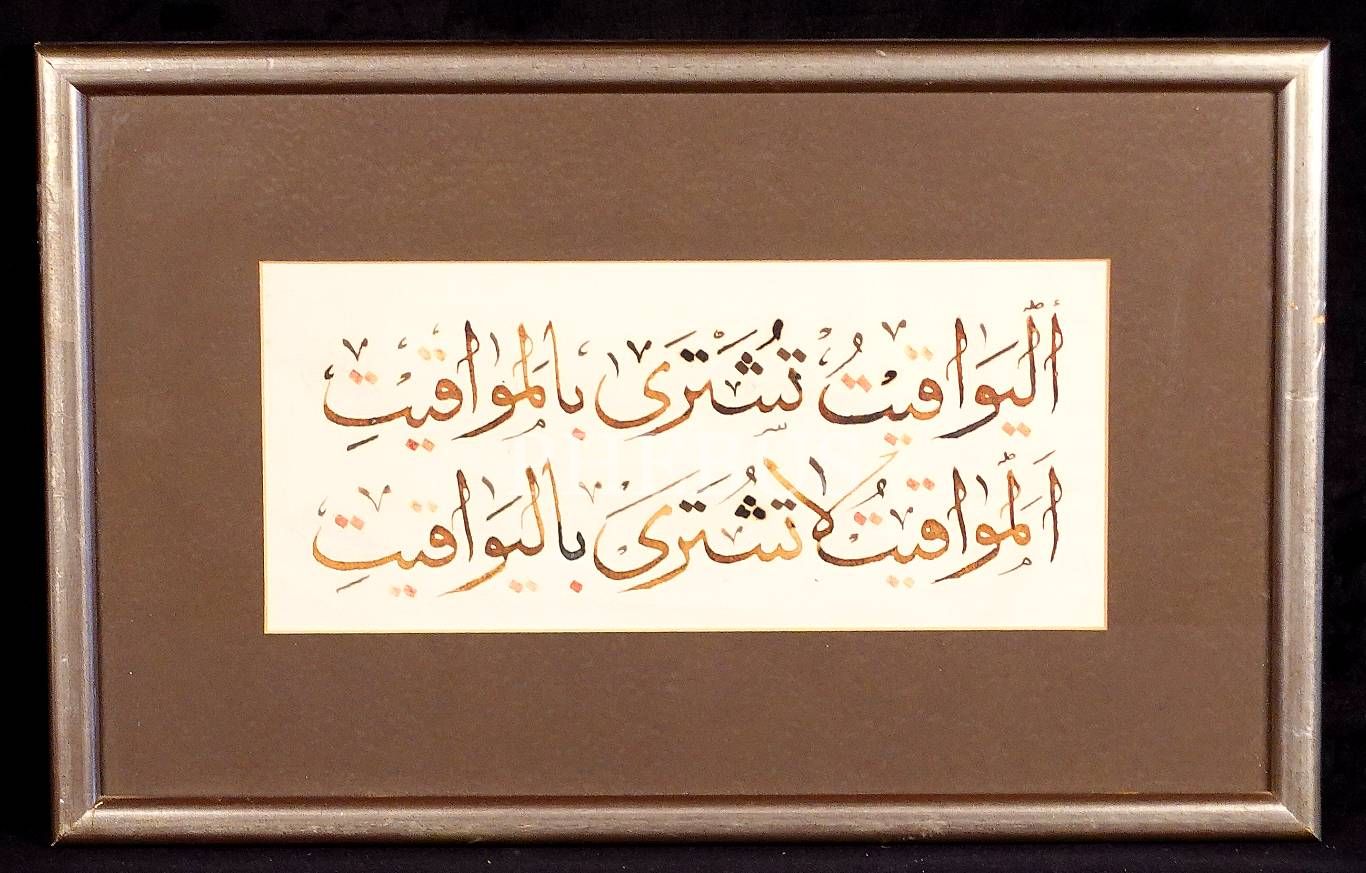 أَلْيَوَاقِيْتُ تُشْتَرَى بِالْمَوَاقِيْتِ
اَلْمَوَاقِيْتُ لَا تُشْتَرَى بِالْيَوَاقِيْتِ